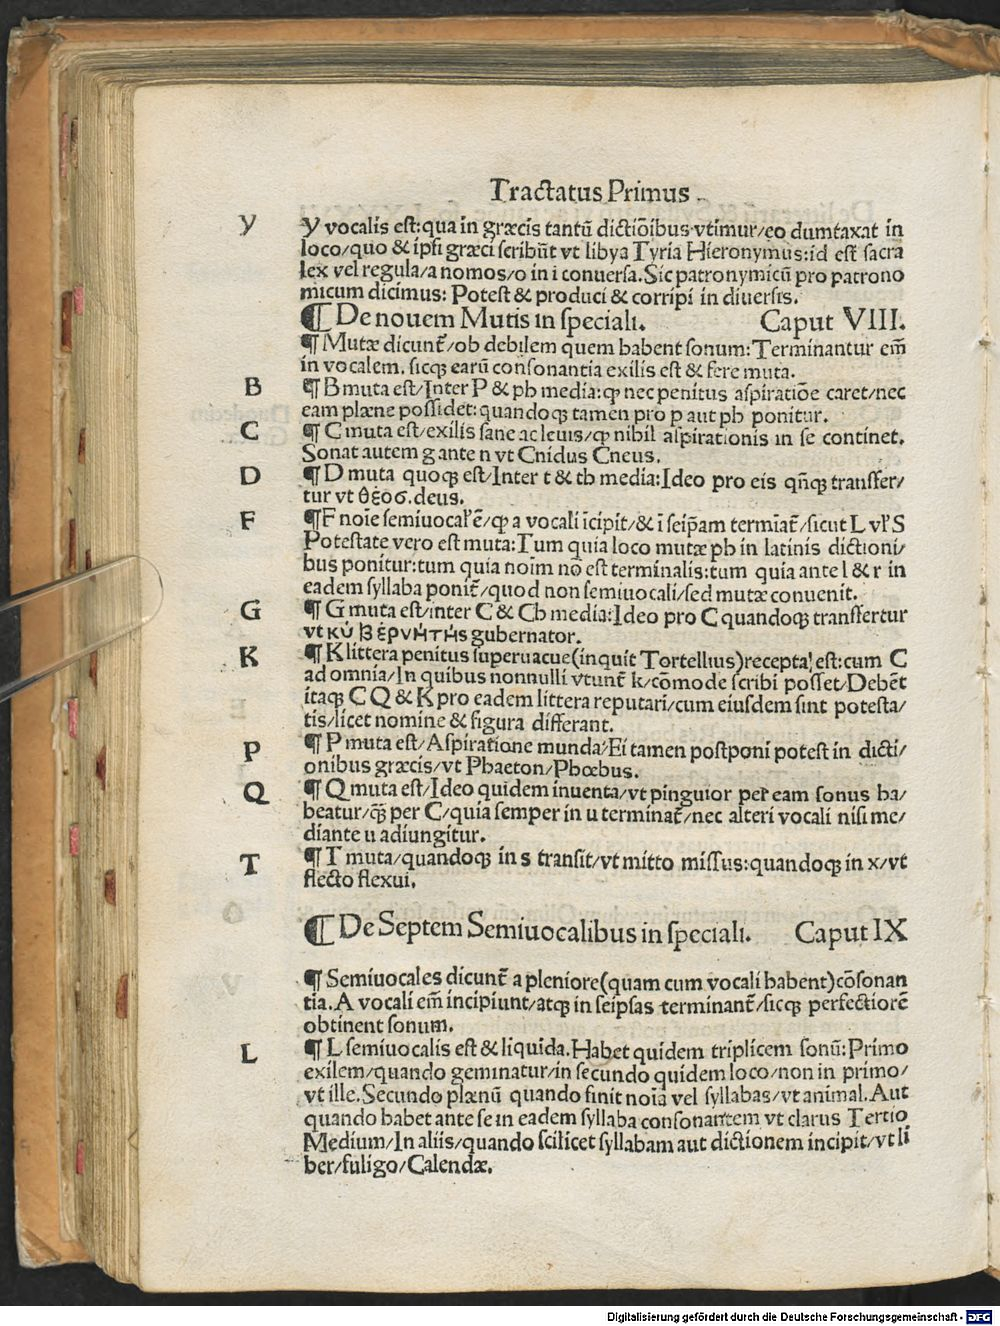 Tractatus Primus
y y vocalis est:qua in græcis tantū dictiōibus vtimur/eo dumtaxat in
loco/quo & ipsi græci scribūt vt libya Tyria Hieronymus:id est sacra
lex vel regula/a nomos/o in i conuersa.Sic patronymicū pro patrono
micum dicimus: Potest & produci & corripi in diuersis.
¶ De nouem Mutis in speciali. Caput VIII.
¶ Mutæ dicunt̃/ob debilem quem habent sonum:Terminantur em̃
in vocalem, sicqꝫ earū consonantia exilis est & fere muta.
B ¶ B muta est/Inter P & ph media:ꝙ nec penitus aspiratiōe caret/nec
eam plæne possidet:quandoqꝫ tamen pro p aut ph ponitur.
C ¶ C muta est/exilis sane ac leuis/ꝙ nihil aspirationis in se continet.
Sonat autem g ante n vt Cnidus Cneus.
D ¶ D muta quoqꝫ est/Inter t & th media:Ideo pro eis qñqꝫ transfer/
tur vt θέος.deus.
F ¶ F noīe semiuocal' ē/ꝙ a vocali īcipit/& ī seip̄am termīat̃/sicut L vl' S
Potestate vero est muta:Tum quia loco mutæ ph in latinis dictioni/
bus ponitur:tum quia noīm nō est terminalis:tum quia ante l & r in
eadem syllaba ponit̃/quod non semiuocali/sed mutæ conuenit.
G ¶ G muta est/inter C & Ch media:Ideo pro C quandoqꝫ transfertur
vt κύβέρνήτής gubernator.
K ¶ K littera penitus superuacue(inquit Tortellius)recepta est:cum C
ad omnia/In quibus nonnulli vtunt̃ k/cōmode scribi posset/Debēt
itaqꝫ C Q & K pro eadem littera reputari/cum eiusdem sint potesta/
tis/licet nomine & figura differant.
P ¶ P muta est/Aspiratione munda/Ei tamen postponi potest in dicti/
onibus græcis/vt Phaeton/Phœbus.
Q ¶ Q muta est/Ideo quidem inuenta/vt pinguior per eam sonus ha/
beatur/qꝫ̄ per C/quia semper in u terminat̃/nec alteri vocali nisi me/
diante u adiungitur.
T ¶ T muta/quandoqꝫ in s transit/vt mitto missus:quandoqꝫ in x/vt
flecto flexui.
¶ De Septem Semiuocalibus in speciali. Caput IX
¶ Semiuocales dicunt̃ a pleniore(quam cum vocali habent)cōsonan
tia.A vocali em̃ incipiunt/atqꝫ in seipsas terminant̃/sicqꝫ perfectiorē
obtinent sonum.
L ¶ L semiuocalis est & liquida.Habet quidem triplicem sonū:Primo
exilem/quando geminatur/in secundo quidem loco/non in primo/
vt ille.Secundo plænū quando finit noīa vel syllabas/vt animal.Aut
quando habet ante se in eadem syllaba consonantem vt clarus Tertio
Medium/In aliis/quando scilicet syllabam aut dictionem incipit/vt li
ber/fuligo/Calendæ.
Digitalisierung gefördert durch die Deutsche Forschungsgemeinschaft - DFG